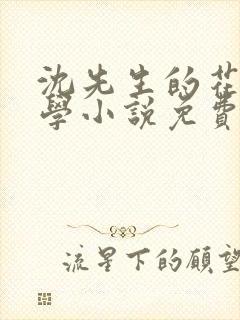 沈先生的花
學小說免費
流星下的願望